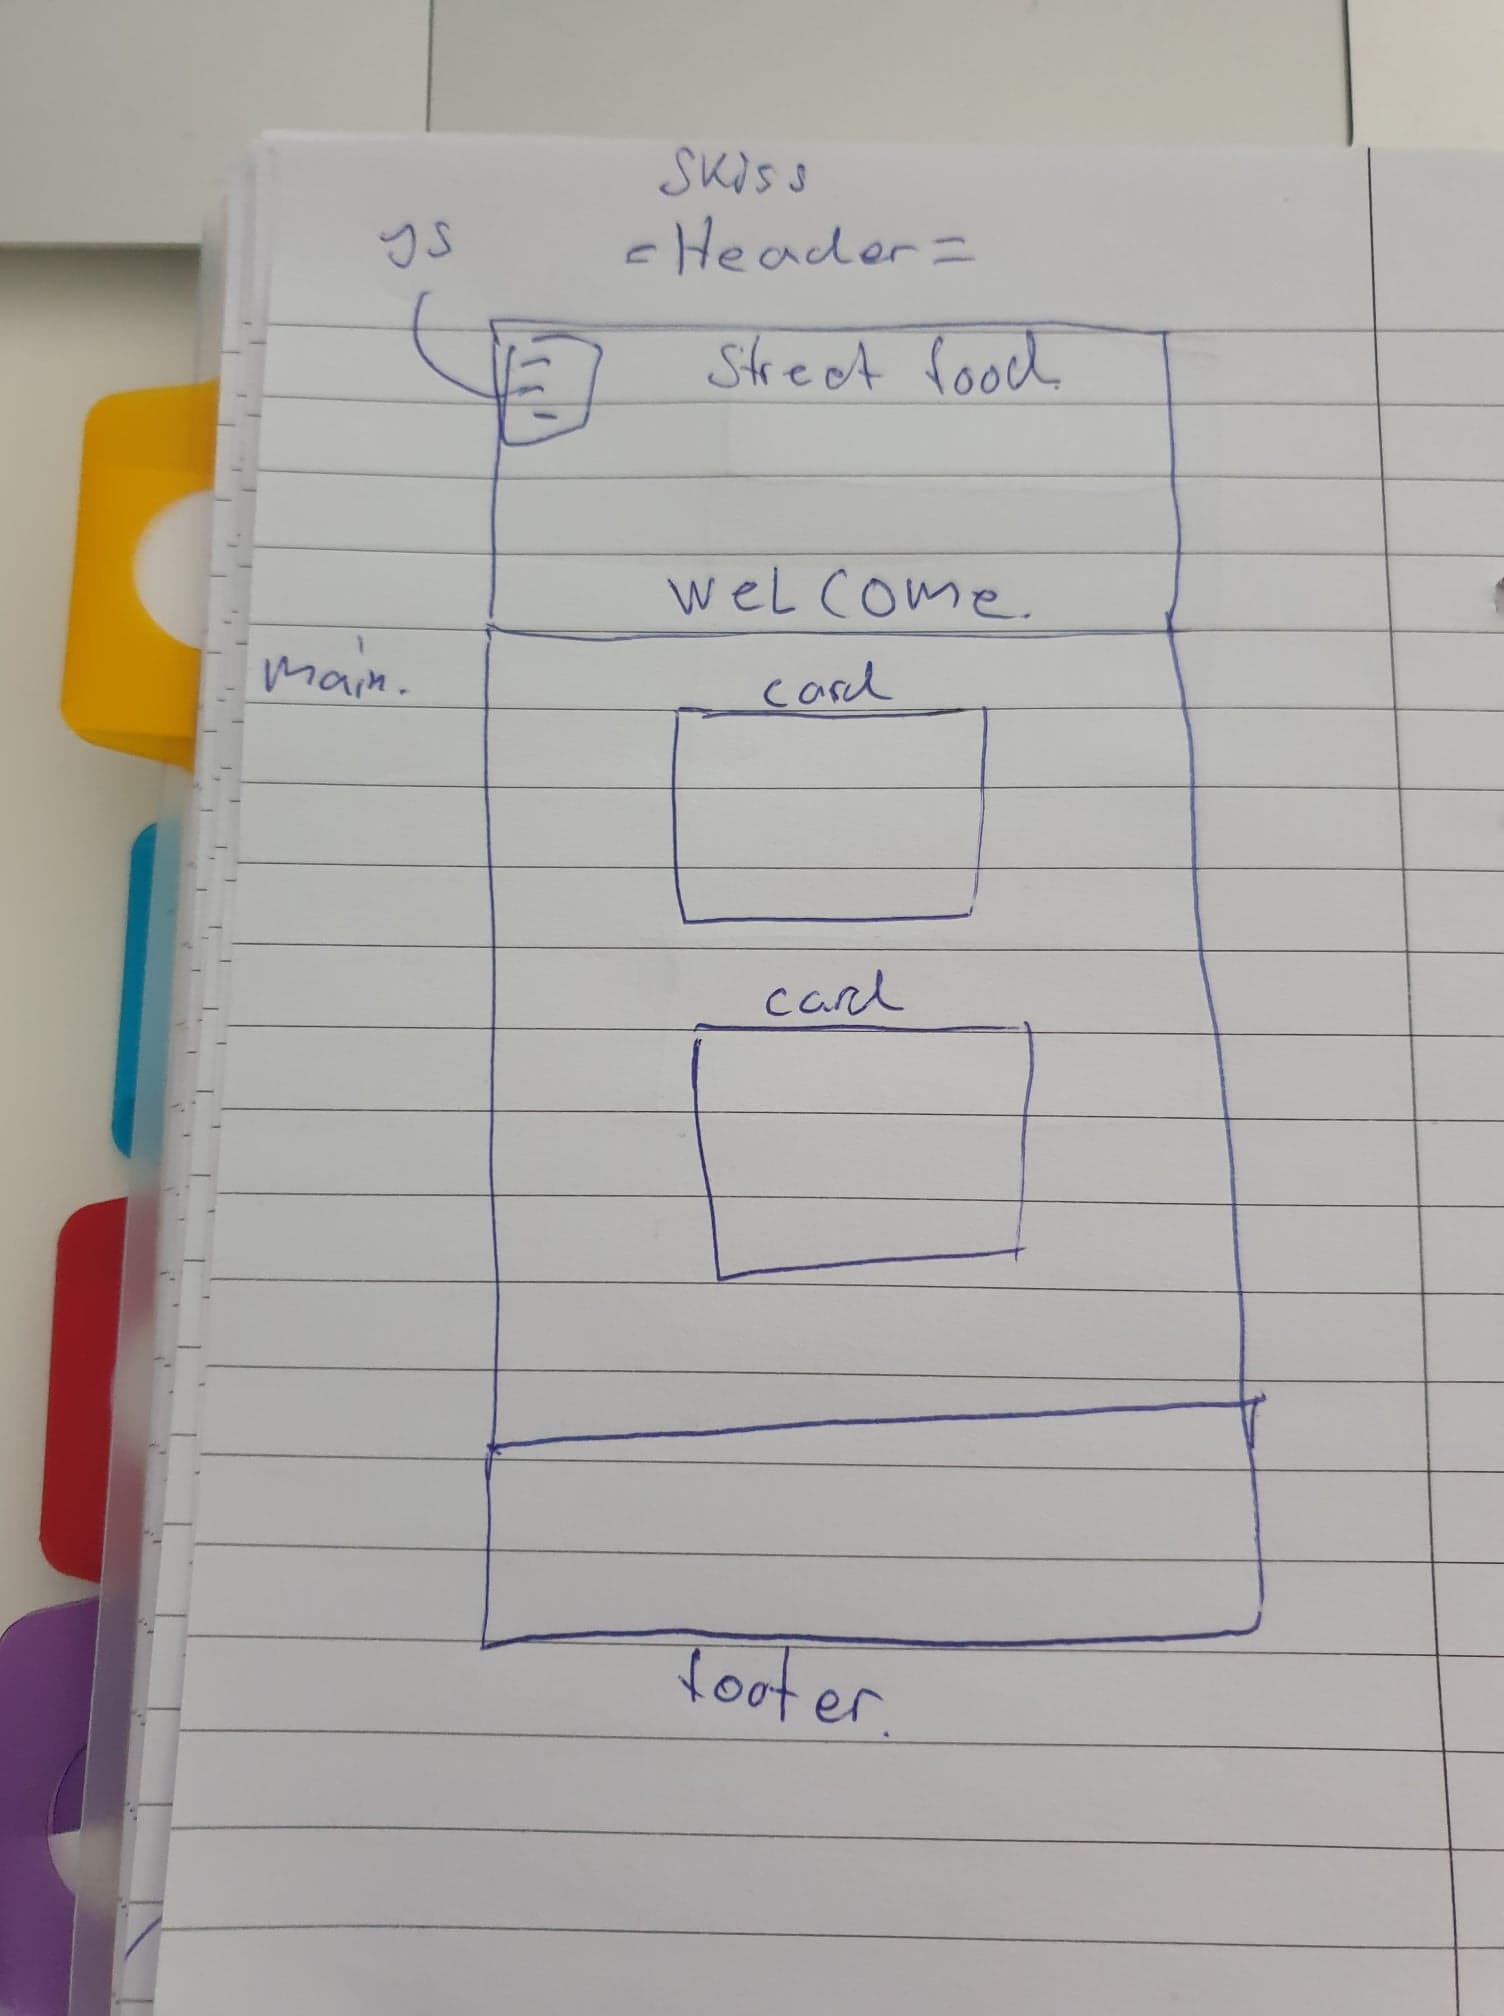 Skiss
JS
=Header=
Street food.
Welcome.
main.
card
card
footer.